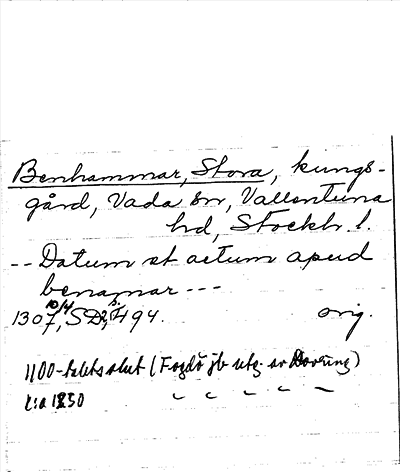 Benhammar, Stora, kungs-
gård, Vada sn, Vallentuna
hd, Stockh. l.
-- Datum et actum apud
benamar ---
1307 10/4, SD 2, s. 494. orig.
1100-talets slut (Fogdö jb utg. av
c:a 1250 " " " " "